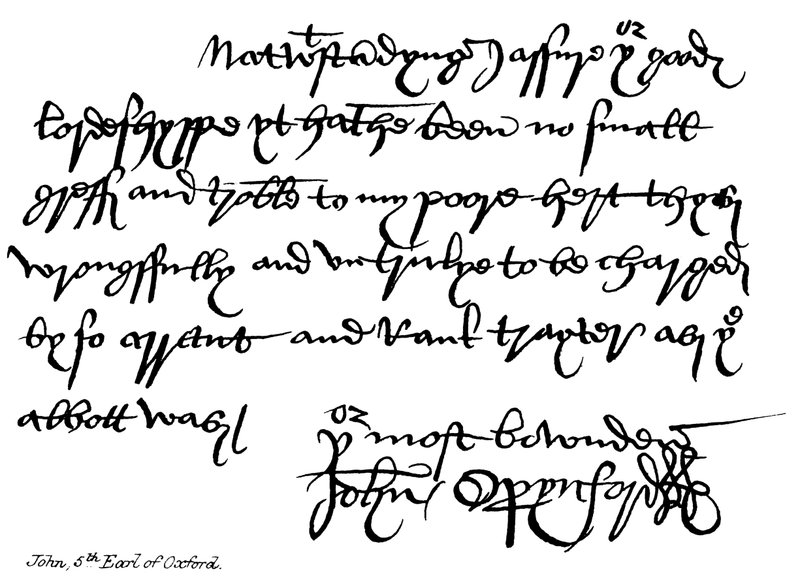 Notwtstādyng I assure yor good
lordeshyppe yt hathe been no small
greff and troble to my poore hert thys
wrongffully and vntrulye to be charged
by so arrant and Rank trayter as ye
abbott was
yor most bownden
John Oxenford
John, 5th Earl of Oxford.